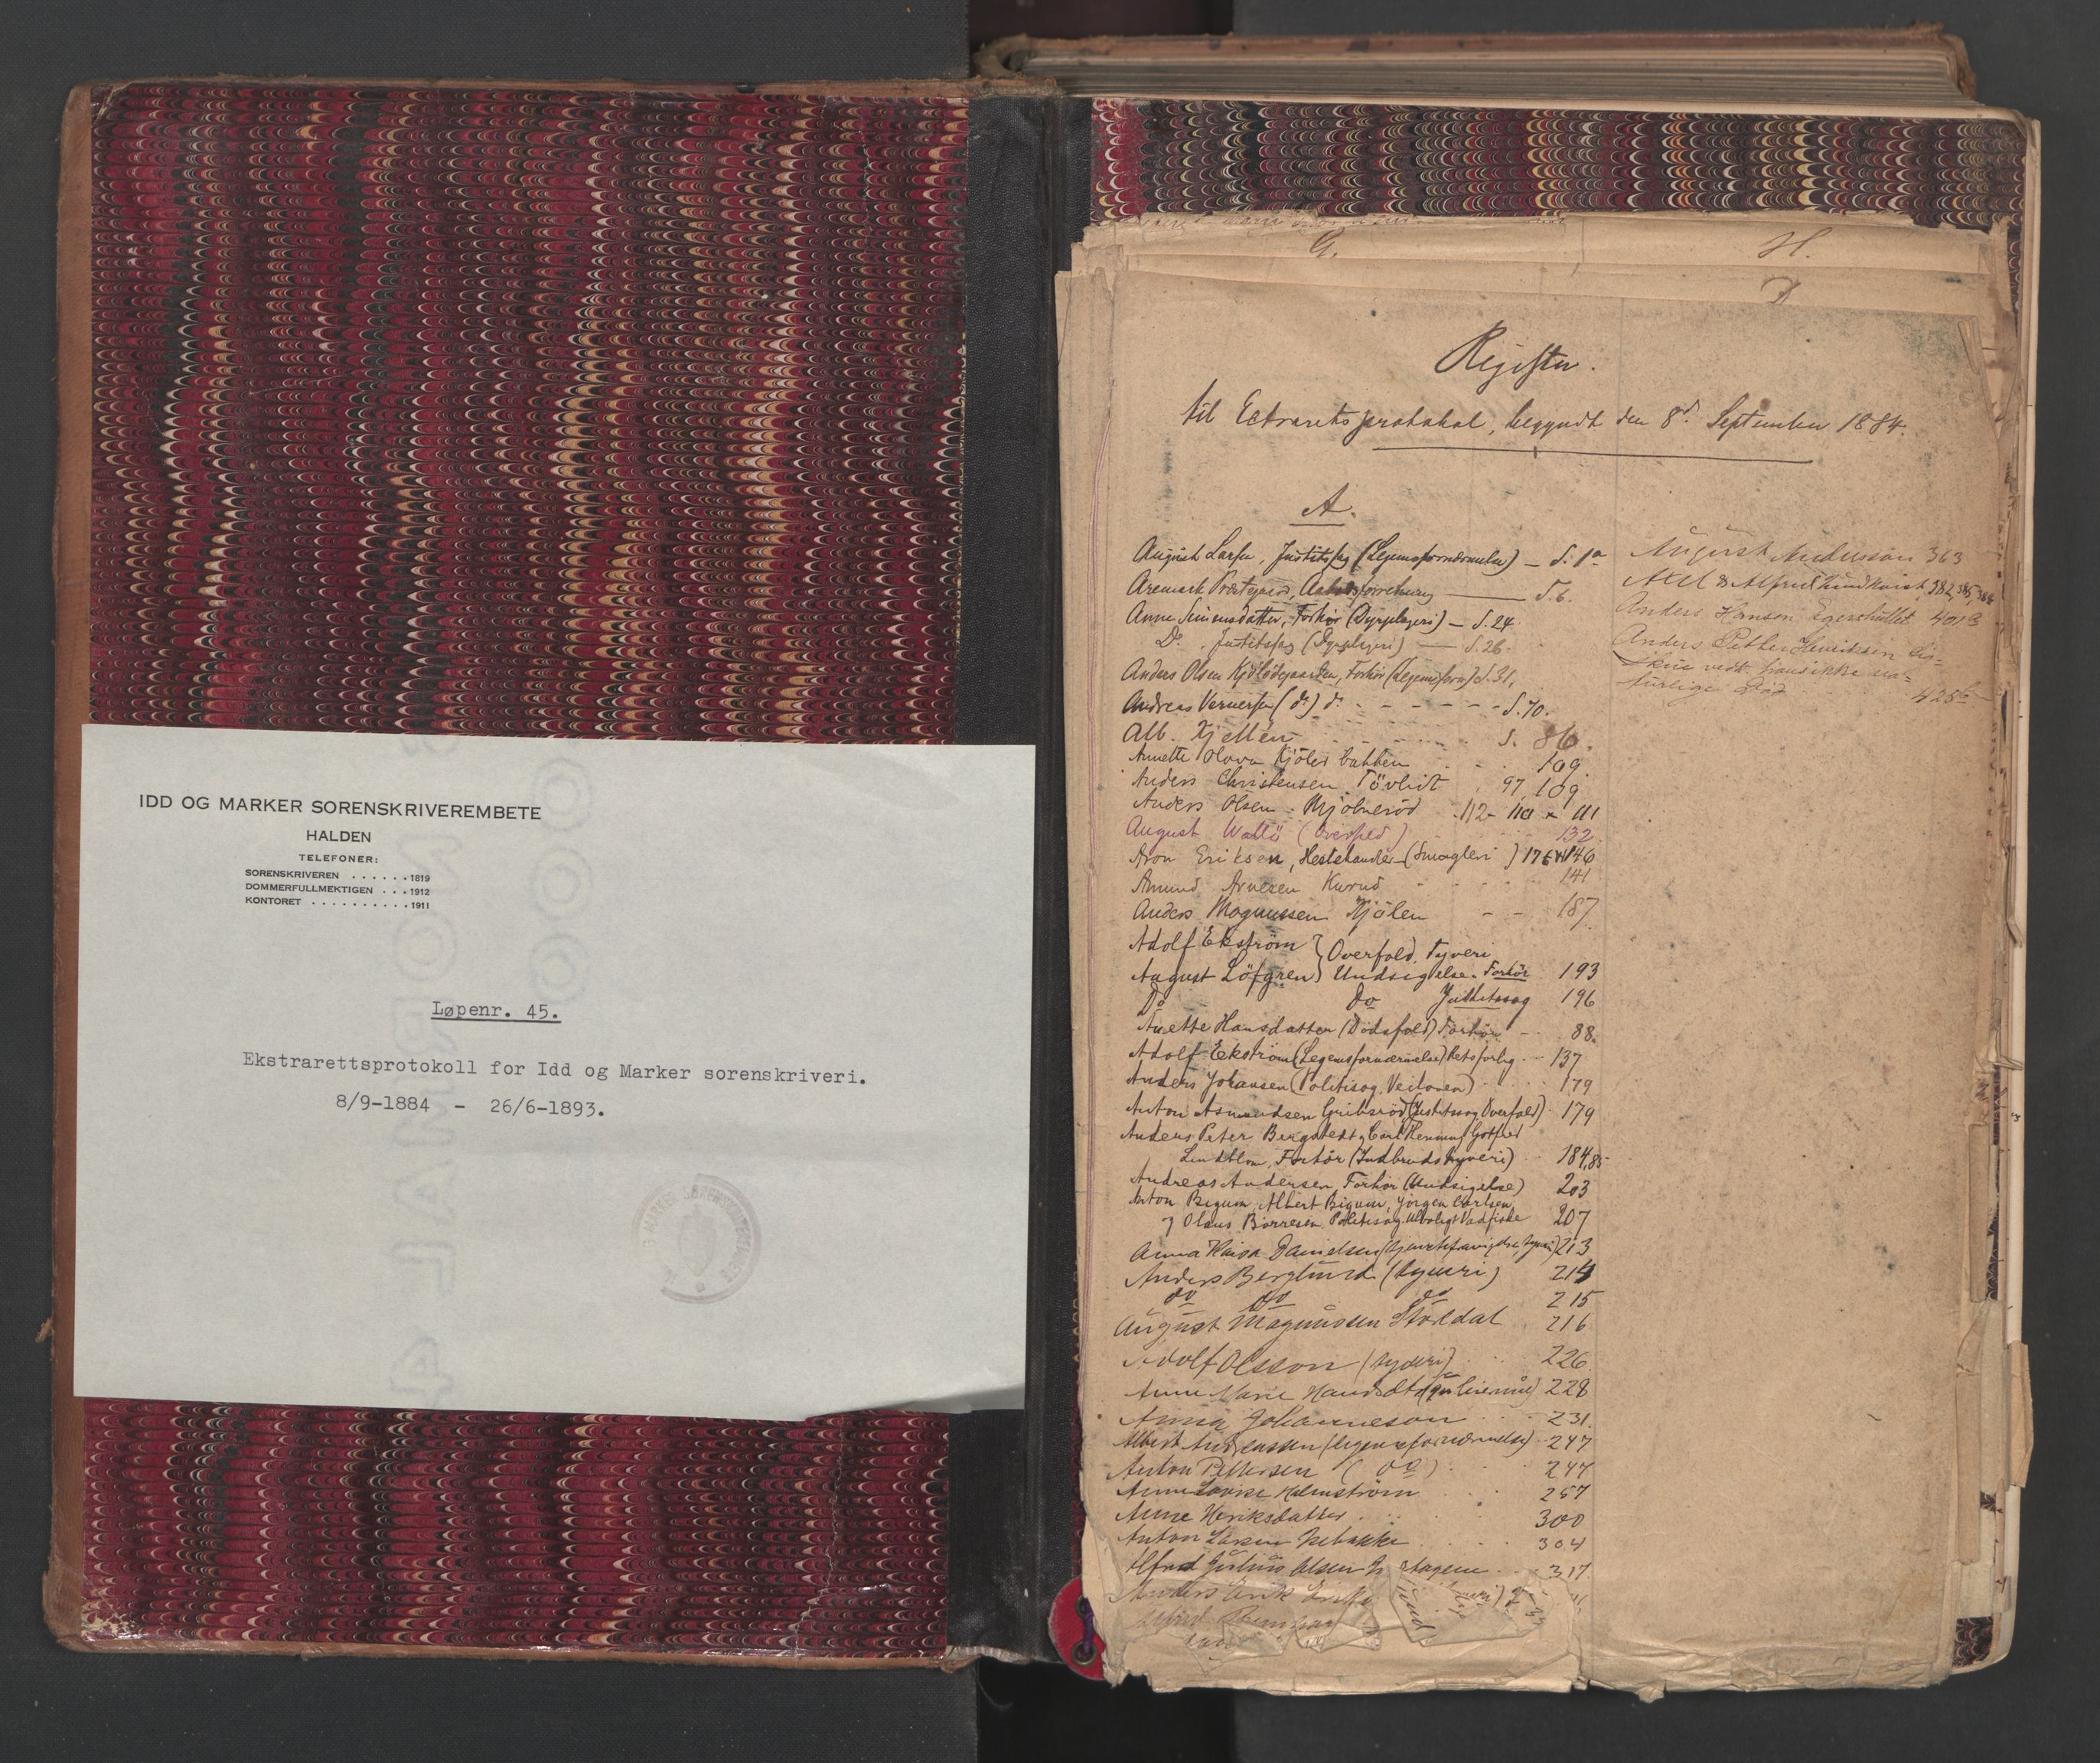 IDD OG MARKER SORENSKRIVEREMBETE
HALDEN
TELEFONER:
SORENSKRIVEREN . . . . . . 1819
DOMMERFULLMEKTIGEN . . . 1912
KONTORET . . . . . . . . . . 1911
Løpenr. 45.
Ekstrarettsprotokoll for Idd og Marker sorenskriveri.
8/9-1884 - 26/6-1893.
G. H.
D
Register.
til Extraretsprotokol, begyndt den 8d September 1884.
A.
August Larsen, Justitssag (Legemsfornærmelse) — S. 1a
Aremark Præstegaard, — S. 6.
Anne Simensdatter, Forhør (Dyrplageri) — S. 24
Do. Justitssag (Dyrplageri) — S. 26.
Anders Olsen Kjølödegaarden, Forhör (Legemsforn) S. 31,
Andreas Vernersen (do) do - - - - - - S. 70.
Alb. Kjellen S. 86.
Annette Olava Kjölerbakken 109.
Anders Christensen Tövlidt 97, 109
Anders Olsen Mjölneröd 112- 110 - 111
August Wallö (Overfald) 132.
Aron Eriksen, Hestehandler (Smugleri) 146
Amund Arnesen Kurud 141
Anders Magnussen Kjölen - - 187
Adolf Ekström } Overfald, Tyveri
August Löfgren } Undsigelse. Forhör 193
Do Do Justitssag 196
Anette Hansdatter (Dödsfald) Forhör - 88.
Adolf Eckström (Legemsfornærmelse) Retsforlig - 137
Anders Johansen (Politisag, Veiloven) 179
Anton Asmundsen Gribsröd (Justitssag Overfald) 179
Anders Peter Bergstedt, Carl Henning Gotfred
Lindblom, Forhör (Indbrudstyveri) 184,85
Andreas Andersen, Forhör (Undsigelse) 203
Anton Bigum, Albert Bigum, Jörgen Carlsen
og Olaus Börresen Politisag Ulovligt Vadfiske 207
Anna Kaisa Danielsen 213
Anders Berglund (Tyveri) 214
do do do 215
August Magnussen Stordal 216
Adolf Olsson (Tyveri) 226
Anne Marie Hansdtr 228
Anna Johanneson 231.
Albert Andreassen (legemsfornærmelse) 247
Anton Pettersen (do) 247
Anne Lovise Holmström 257
Anne Henriksdatter 300
Anton Larsen 304
Alfred Julius Olsen 317
Anders Erik
August Andersson 363
Axel & Alfred Lindkvist, 382, 385, 388
Anders Hansen 401
Anders Petter Henriksen
vedk hans ikke na=
turlige Död 425b